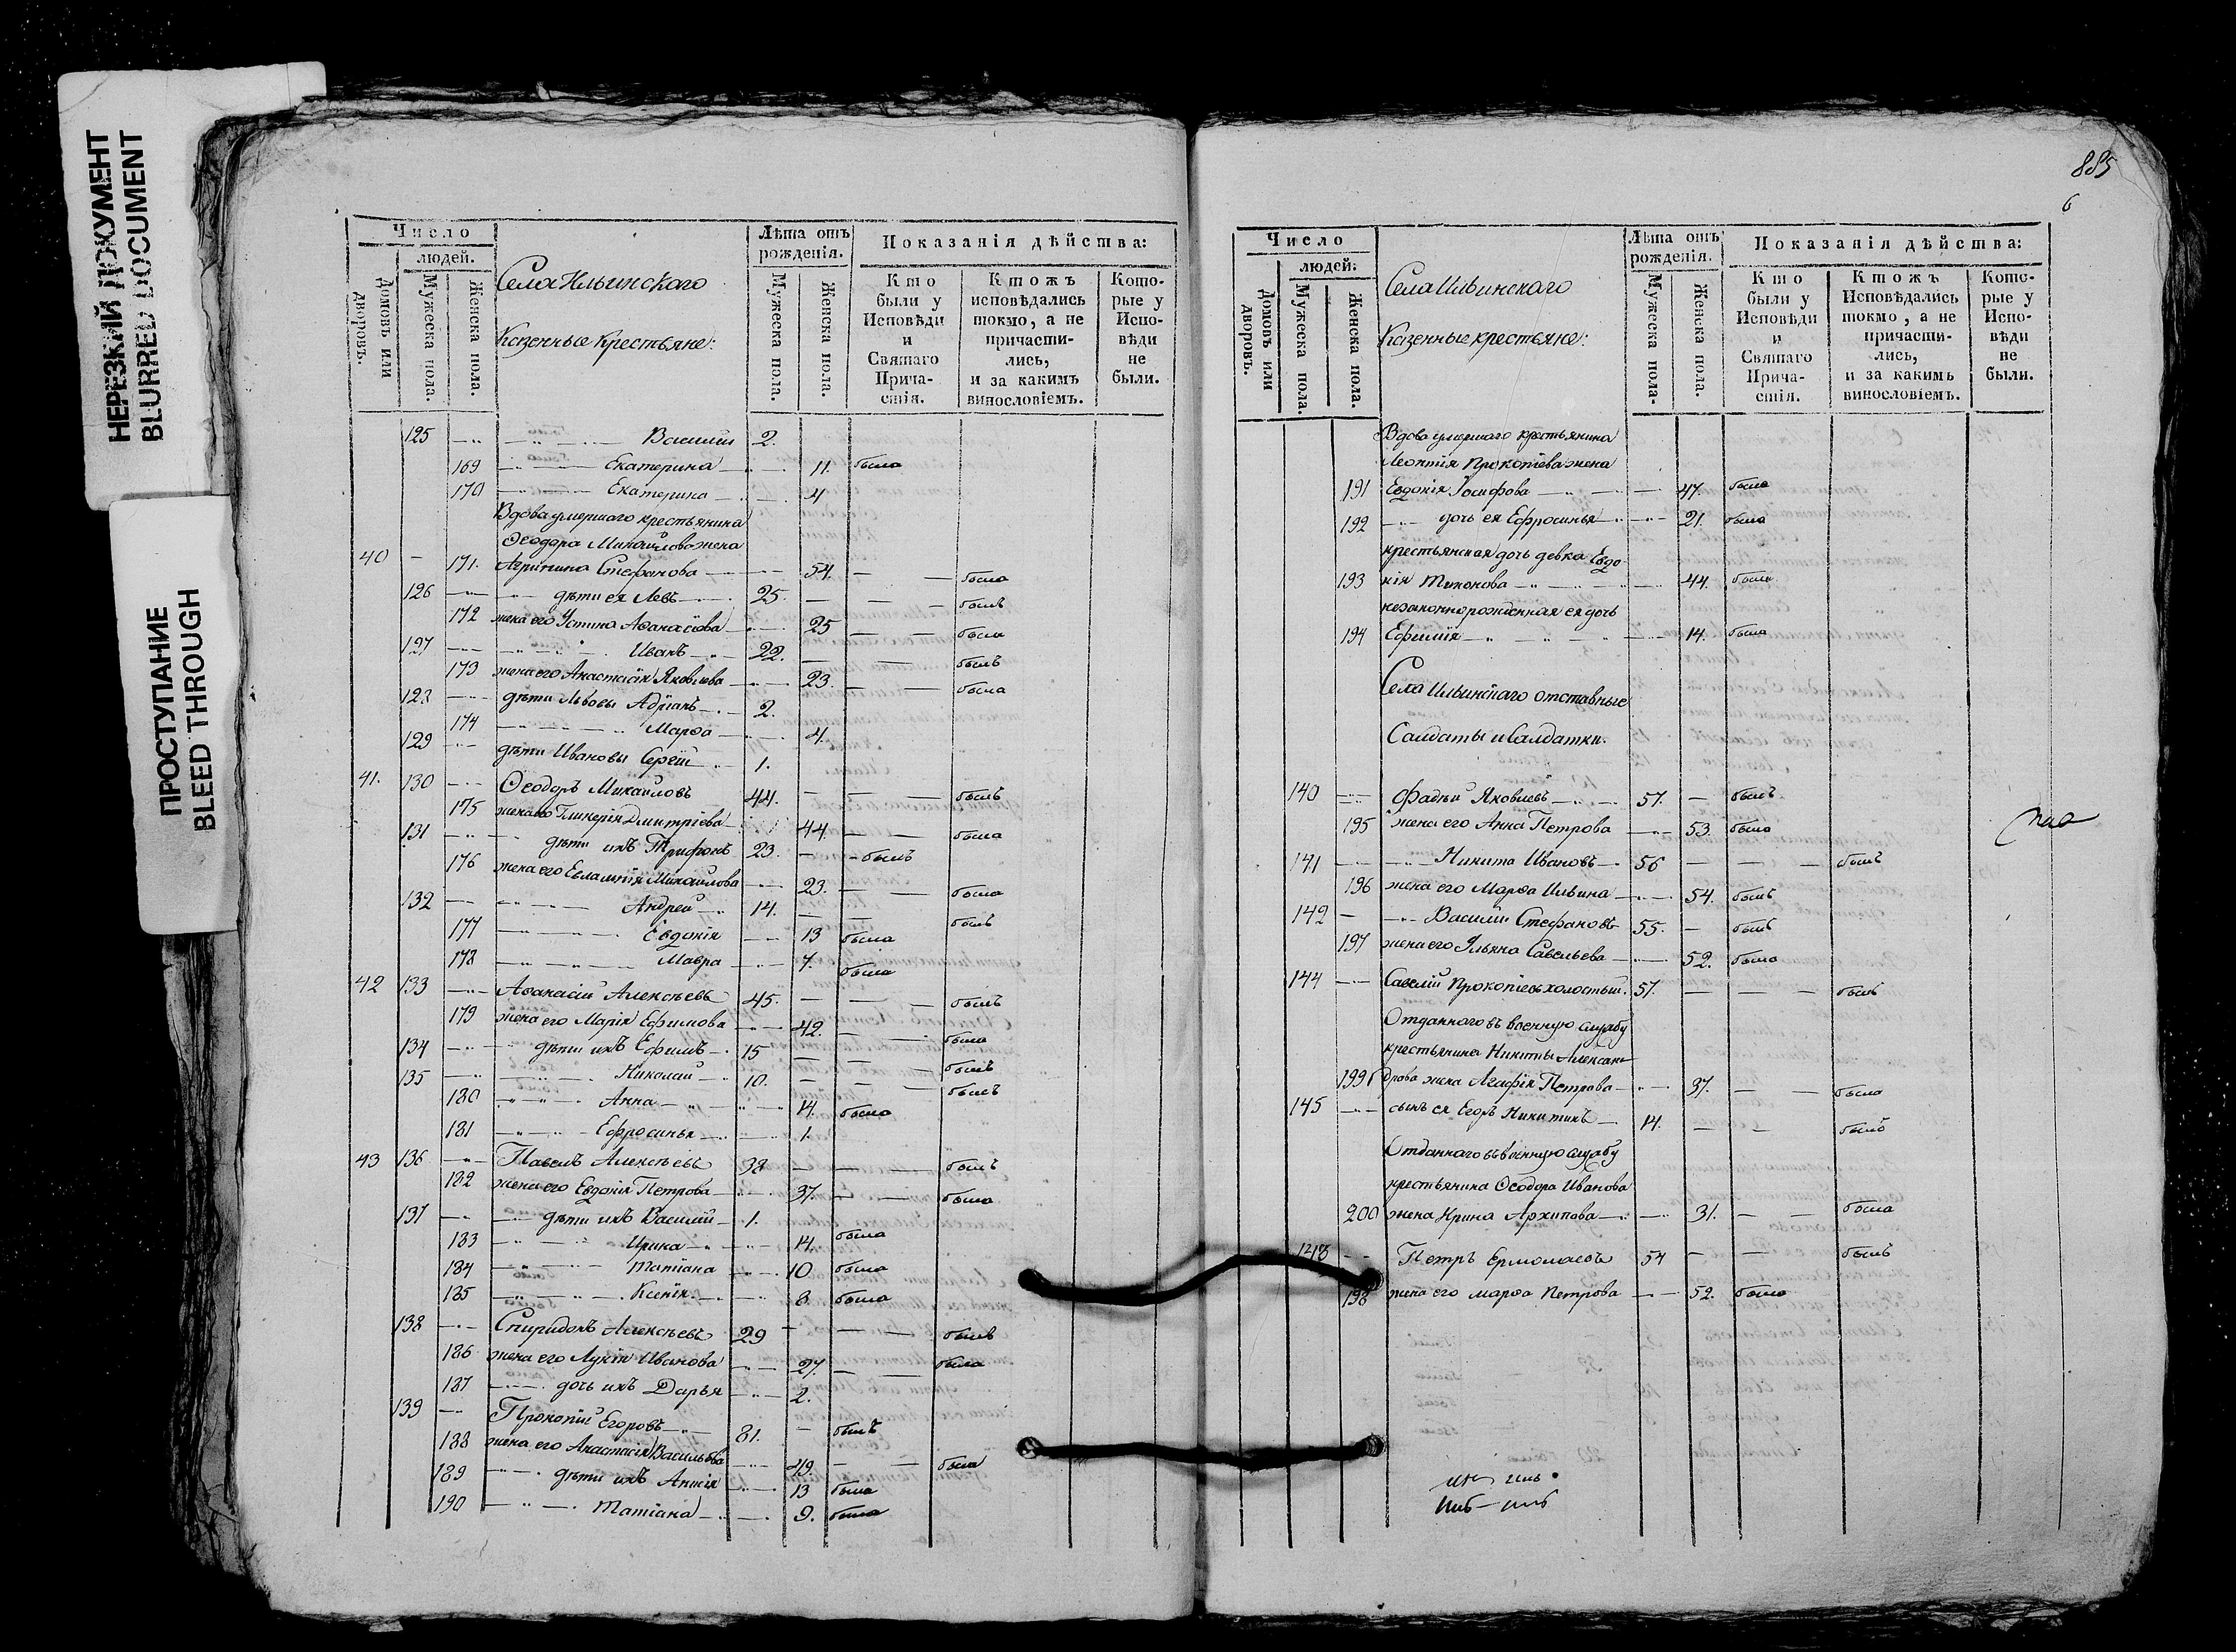 НЕРЕЗКИЙ ДОКУМЕНТ
BLURRED DOCUMENT
ПРОСТУПАНИЕ
BLEED THROUGH
Число
людей.
Домовъ или дворовъ.
Мужеска пола.
Женска пола.
Села Ильинскаго
Казенные Крестьяне:
Лѣта отъ рожденія.
Мужеска пола.
Женска пола.
Показанія дѣйства:
Кто были у Исповѣди и Святаго Прича-стія.
Ктожъ исповѣдались токмо, а не причасти-лись, и за какимъ винословіемъ.
Кото-рые у Испо-вѣди не были.
125 Василій 2.
169 Екатерина 11. была
170 Екатерина 4
Вдова умершаго крестьянина
Ѳеодора Михайлова жена
40 171. Агрипина Стефанова 54. была
126 дѣти ея Левъ 25. былъ
172 жена его Устина Аѳанасіова 25 была
127 Иванъ 22. былъ
173 жена его Анастасія Яковлева 23. была
128 дѣти Львовы Адріанъ 2.
174 Марѳа 4.
129 дѣти Ивановы Сергій 1.
41. 130 Ѳеодоръ Михайловъ 44. былъ
175 жена его Гликерія Дмитріева 44. была
131 дѣти ихъ Трифонъ 23. былъ
176 жена его Евлампія Михайлова 23. была
132 Андрей 14. былъ
177 Евдокія 13 была
178 Мавра 7. была
42 133 Аѳанасій Алексѣевъ 45. былъ
179 жена его Марія Ефимова 42. была
134 дѣти ихъ Ефимъ 15 былъ
135 Николай 10. былъ
180 Анна 14. была
181 Ефросинья 1.
43 136 Павелъ Алексѣевъ 38 былъ
182 жена его Евдокія Петрова 37. была
137 дѣти ихъ Василій 1.
183 Ирина 14. была
184 Татіана 10 была
185 Ксенія 8 была
138 Спиридонъ Алексѣевъ 29 былъ
186 жена его Лукія Иванова 27. была
187 дочь ихъ Дарья 2.
139 Прокопій Егоровъ 81. былъ
188 жена его Анастасія Васильева 49. была
189 дѣти ихъ Анисія 13 была
190 Татіана 9. была
885
6
Число
людей:
Домовъ или дворовъ.
Мужеска пола.
Женска пола.
Села Ильинскаго
Казенные крестьяне:
Лѣта отъ рожденія.
Мужеска пола.
Женска пола.
Показанія дѣйства:
Кто были у Исповѣди и Святаго Прича-стія.
Ктожъ Исповѣдались токмо, а не причасти-лись, и за какимъ винословіемъ.
Кото-рые у Испо-вѣди не были.
Вдова умершаго крестьянина
Леонтія Прокопіева жена
191 Евдокія Іосифова 47. была
192 дочь ея Ефросинья 21. была
крестьянская дочь девка Евдо
193 кія Тихонова 44. была
незаконнорожденная ея дочь
194 Ефимія 14. была
Села Ильинскаго отставные
Солдаты и Солдатки.
140 Фадѣй Яковлевъ 57. былъ
195 жена его Анна Петрова 53. была
141 Никита Ивановъ 56 былъ
196 жена его Марѳа Ильина 54. былъ
142 Василій Стефановъ 55. былъ
197 жена его Ульяна Савельева 52. была
144 Савелій Прокопіевъ холостый. 57. былъ
Отданнаго въ военную службу
крестьянина Никиты Алексан
199 дрова жена Агафія Петрова 37. была
145 сынъ ея Егоръ Никитинъ 14. былъ
Отданнаго въ военную службу
крестьянина Ѳеодора Иванова
200 жена Ирина Архипова 31. была
143 Петръ Ермолаевъ 54 былъ
198 жена его марѳа Петрова 52. была